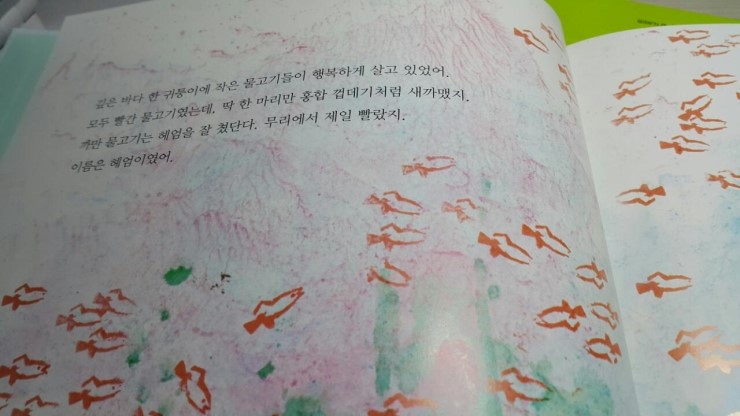 깊은 바다 한 귀퉁이에 작은 물고기들이 행복하게 살고 있었어.
모두 빨간 물고기였는데, 딱 한 마리만 홍합 껍데기처럼 새까맸지.
까만 물고기는 헤엄을 잘 쳤단다. 무리에서 제일 빨랐지.
이름은 헤엄이였어.